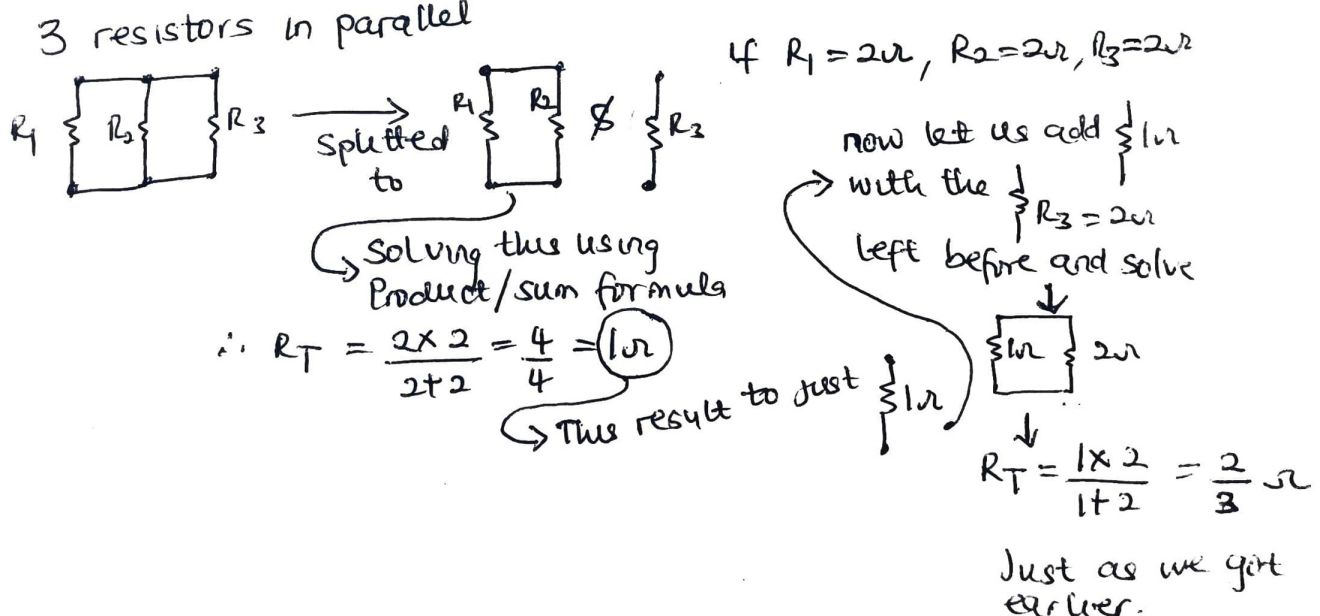 3 resistors in parallel
R1 R2 R3
Splitted
to
R1 R2 $ R3
Solving this using
Product/sum formula
∴ RT = 2×2/2+2 = 4/4 = 1Ω
This result to just 1Ω
If R1 = 2Ω, R2=2Ω, R3=2Ω
now let us add 1Ω
with the R3 = 2Ω
left before and solve
1Ω 2Ω
RT = 1×2/1+2 = 2/3 Ω
Just as we got
earlier.